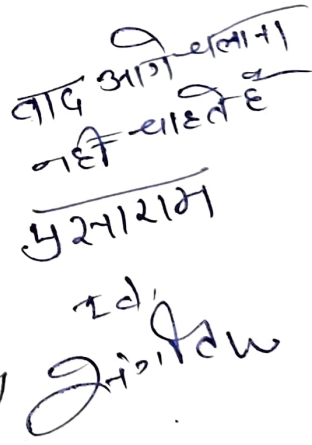 वाद आगे चलाना
नहीं चाहते है
पुसाराम